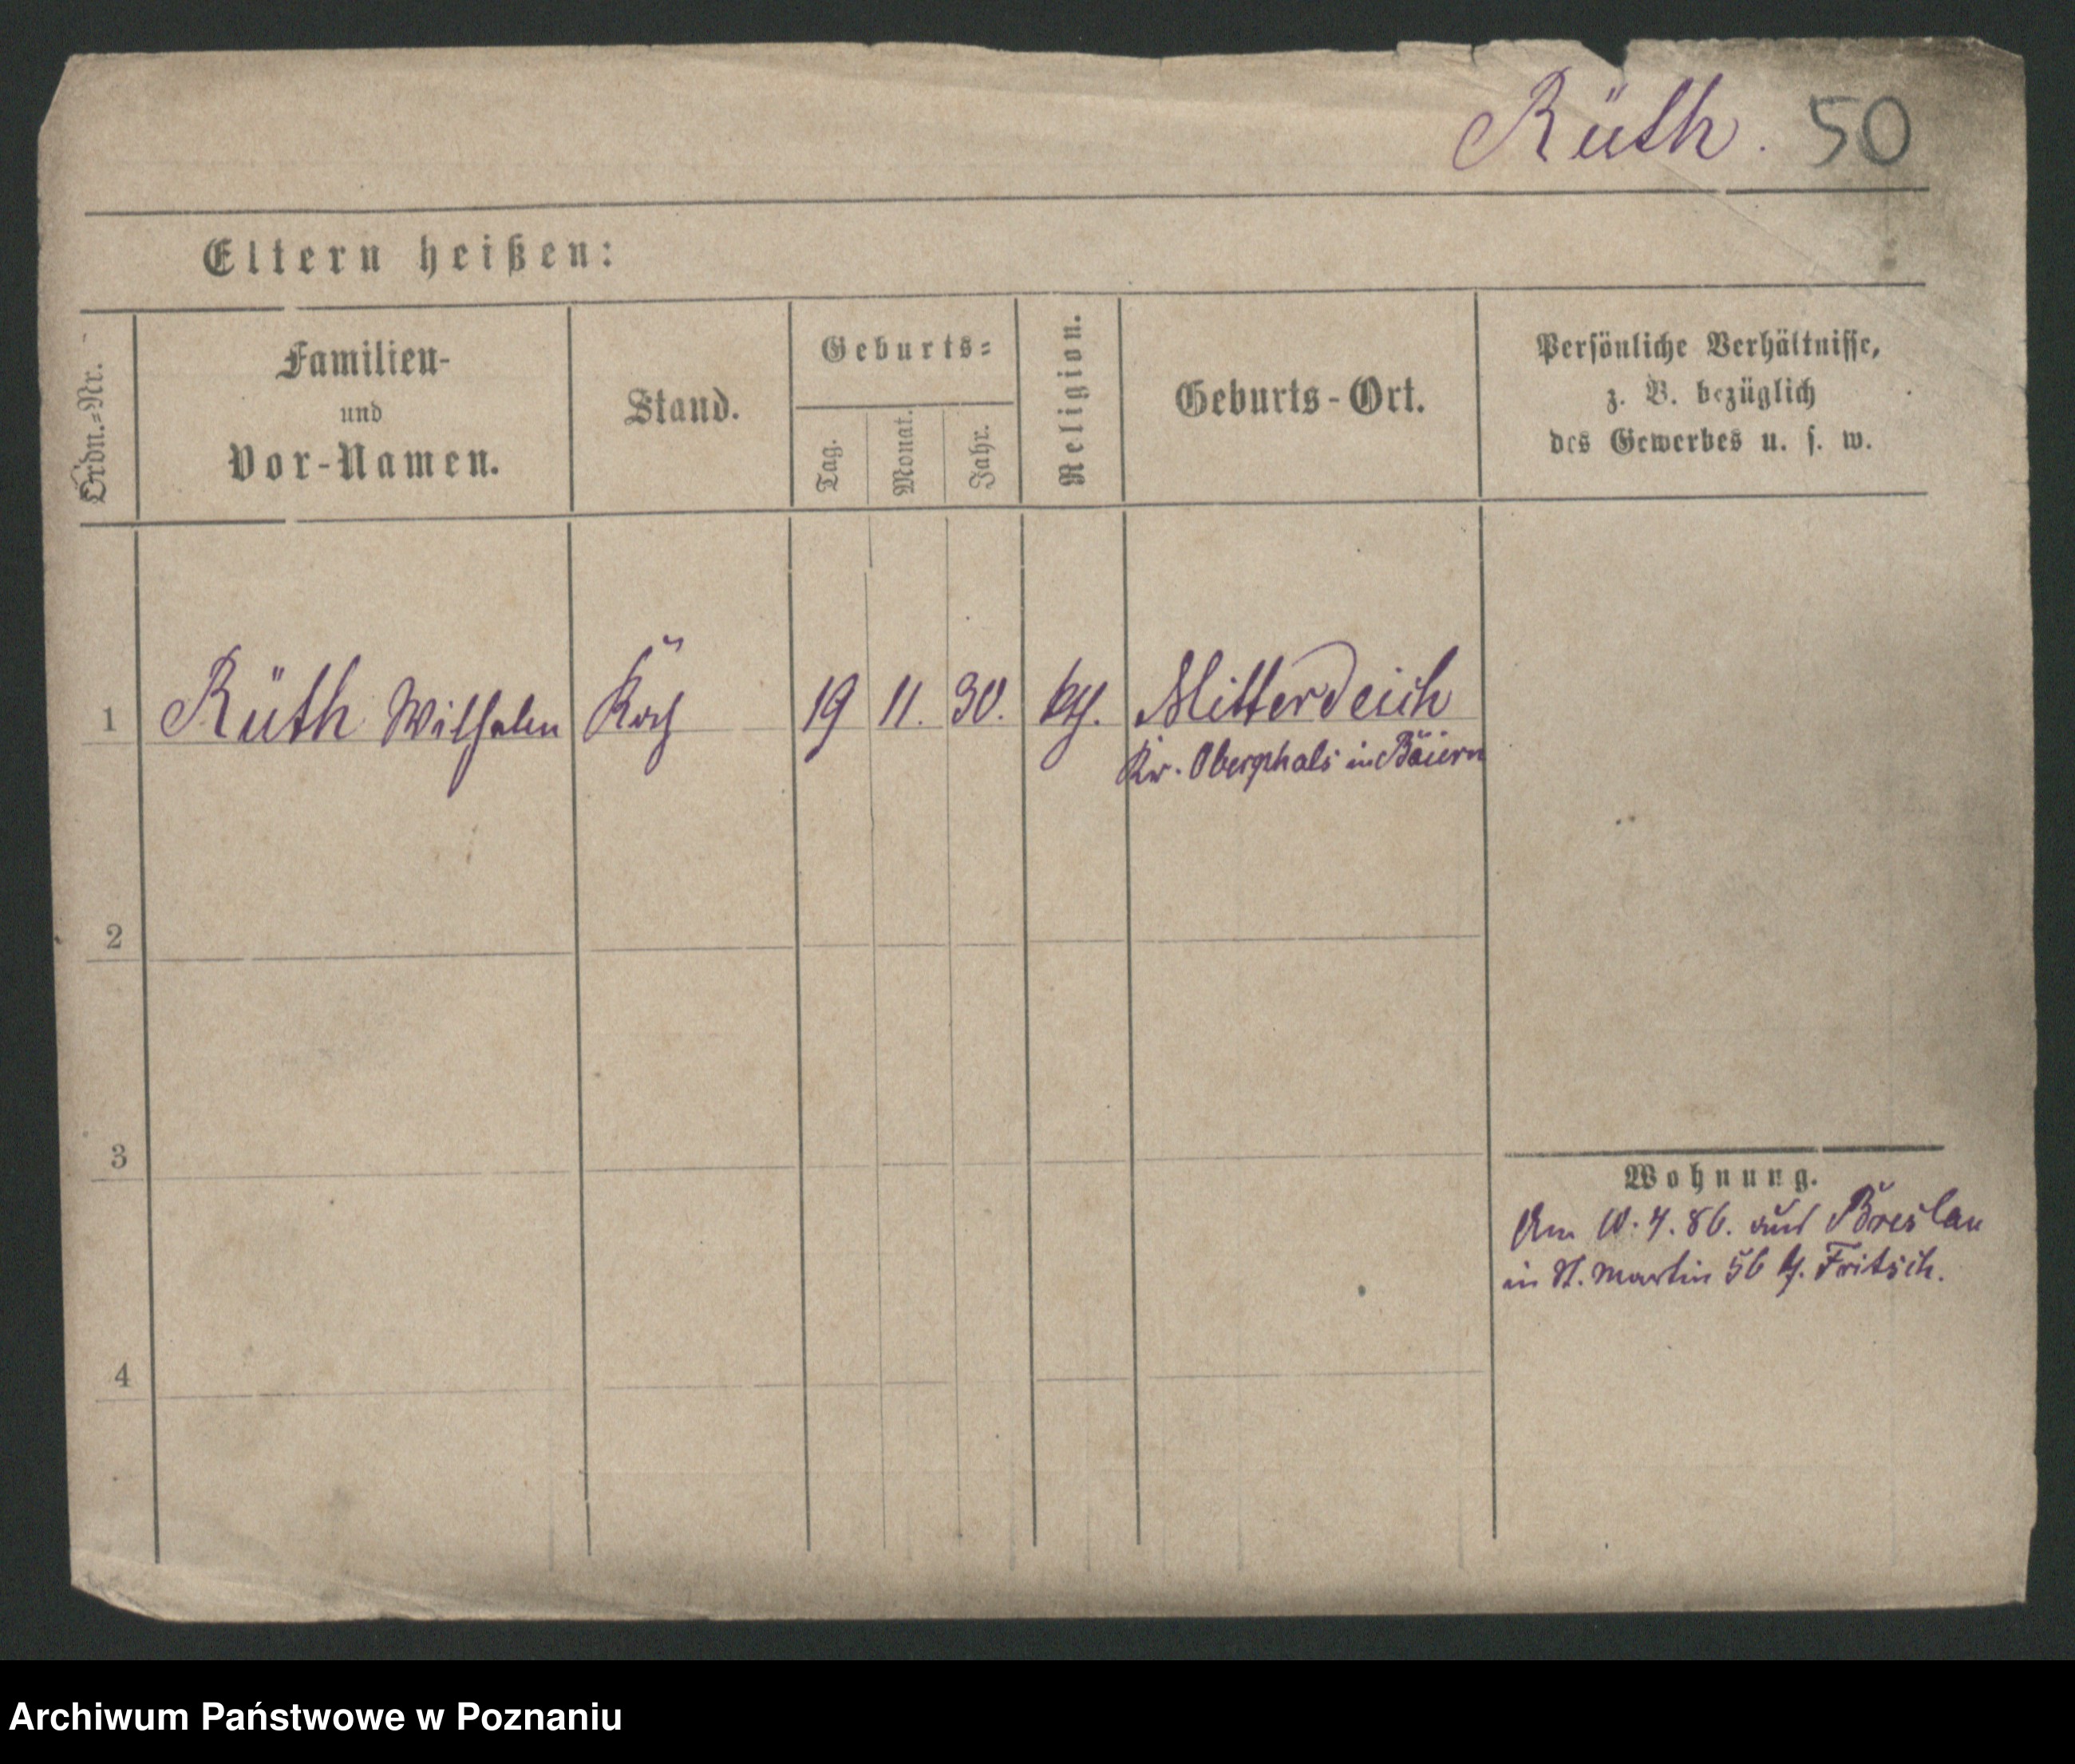 Rüth. 50
Eltern heißen:
Ordn.=Nr.
Familien-
und
Vor-Namen.
Stand.
Geburts=
Tag.
Monat.
Jahr.
Religion.
Geburts-Ort.
Persönliche Verhältnisse,
z. B. bezüglich
des Gewerbes u. s. w.
1 Rüth Wilhelm Koch 19 11. 30. kth. Mitterdeich
Kr. Oberphals in Baiern
2
3
Wohnung.
Am 10.4.86. aus Breslau
in St. Martin 56 b. Fritsch.
4
Archiwum Państwowe w Poznaniu